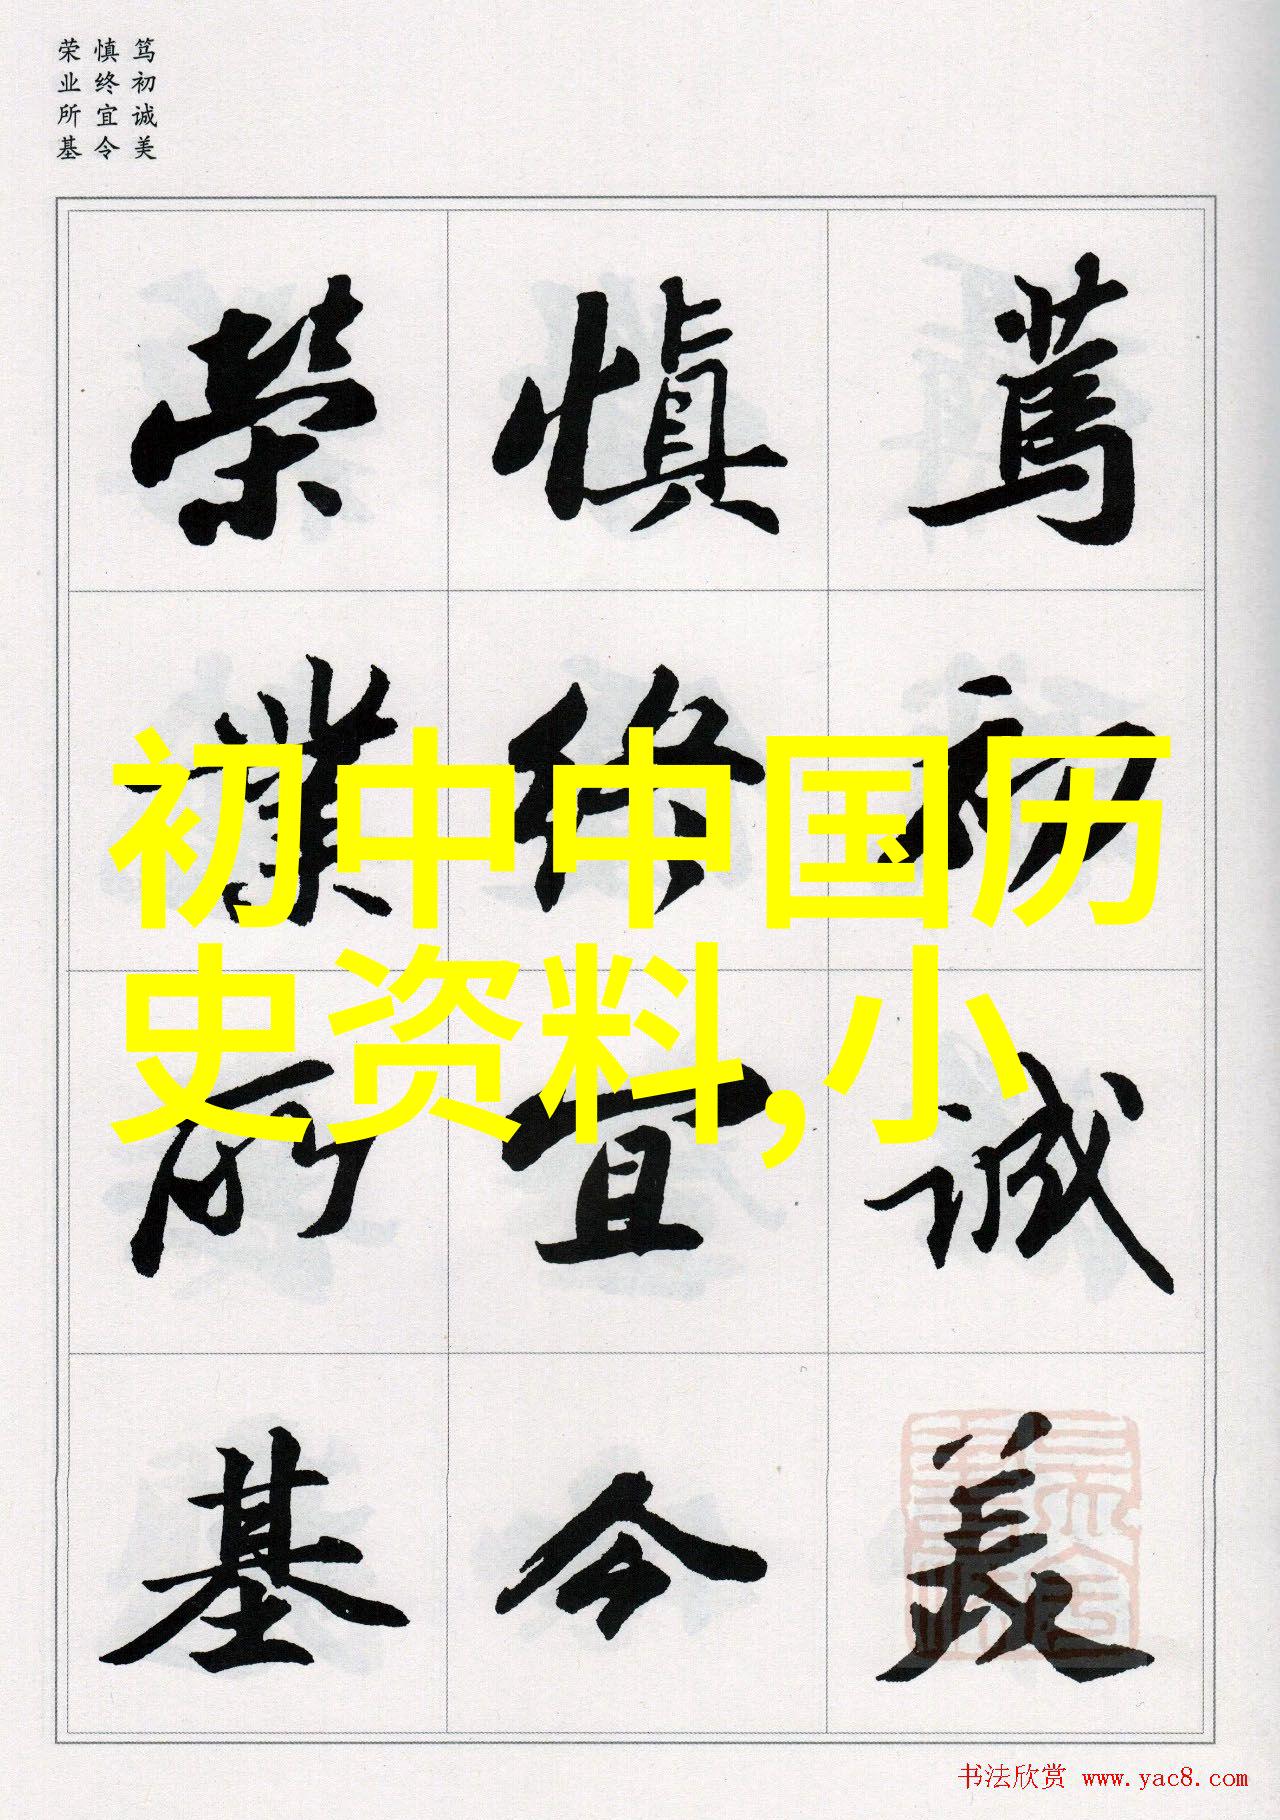 笃初诚美
慎终宜令
荣业所基
篤初誠美
慎終宜令
榮業所基
初中中国历
史资料,小
书法欣赏 www.yac8.com